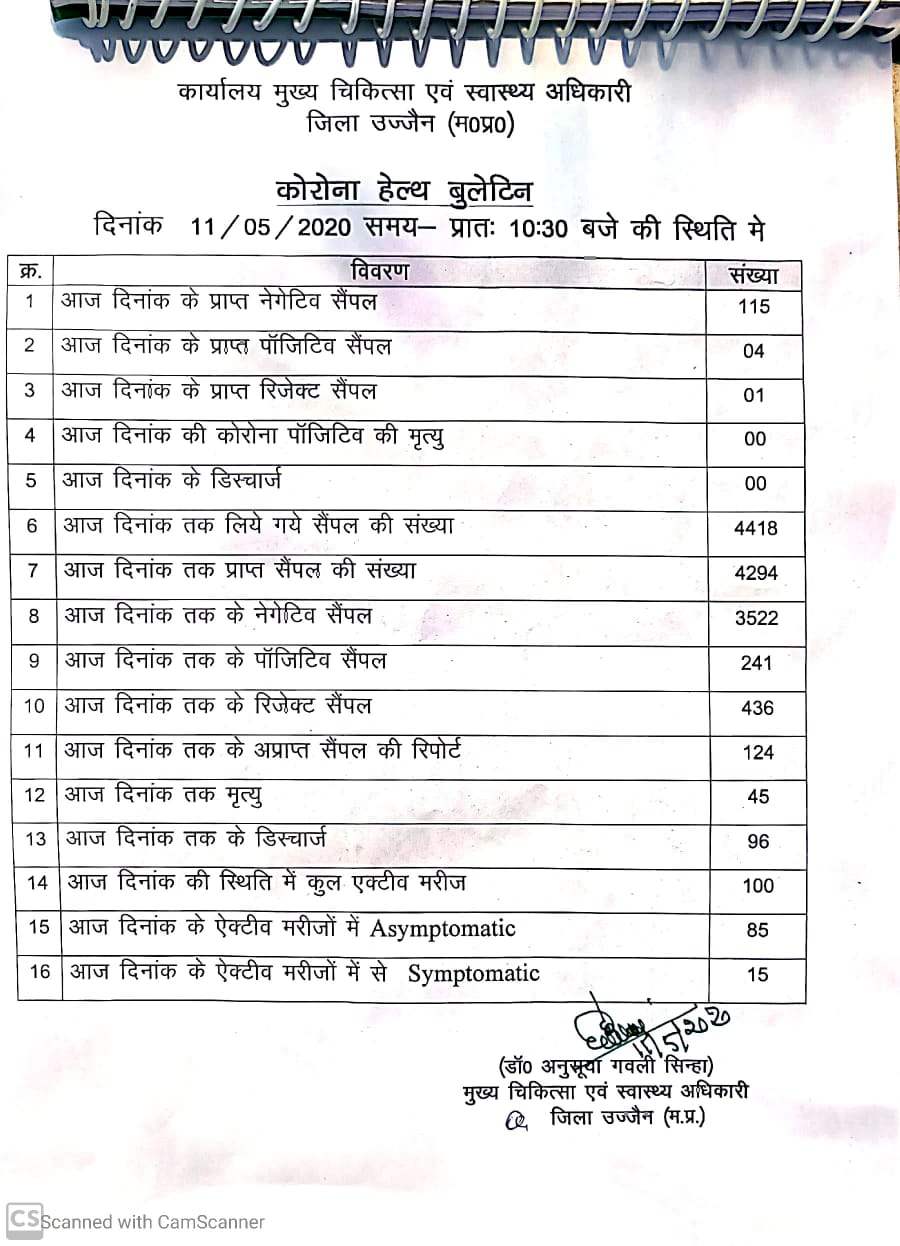 कार्यालय मुख्य चिकित्सा एवं स्वास्थ्य अधिकारी
जिला उज्जैन (म0प्र0)
कोरोना हेल्थ बुलेटिन
दिनांक 11/05/2020 समय– प्रातः 10:30 बजे की स्थिति मे
क्र. विवरण संख्या
1 आज दिनांक के प्राप्त नेगेटिव सैंपल 115
2 आज दिनांक के प्राप्त पॉजिटिव सैंपल 04
3 आज दिनांक के प्राप्त रिजेक्ट सैंपल 01
4 आज दिनांक की कोरोना पॉजिटिव की मृत्यु 00
5 आज दिनांक के डिस्चार्ज 00
6 आज दिनांक तक लिये गये सैंपल की संख्या 4418
7 आज दिनांक तक प्राप्त सैंपल की संख्या 4294
8 आज दिनांक तक के नेगेटिव सैंपल 3522
9 आज दिनांक तक के पॉजिटिव सैंपल 241
10 आज दिनांक तक के रिजेक्ट सैंपल 436
11 आज दिनांक तक के अप्राप्त सैंपल की रिपोर्ट 124
12 आज दिनांक तक मृत्यु 45
13 आज दिनांक तक के डिस्चार्ज 96
14 आज दिनांक की स्थिति में कुल एक्टीव मरीज 100
15 आज दिनांक के ऐक्टीव मरीजों में Asymptomatic 85
16 आज दिनांक के ऐक्टीव मरीजों में से Symptomatic 15
11/5/2020
(डॉ0 अनुसूया गवली सिन्हा)
मुख्य चिकित्सा एवं स्वास्थ्य अधिकारी
जिला उज्जैन (म.प्र.)
CS Scanned with CamScanner